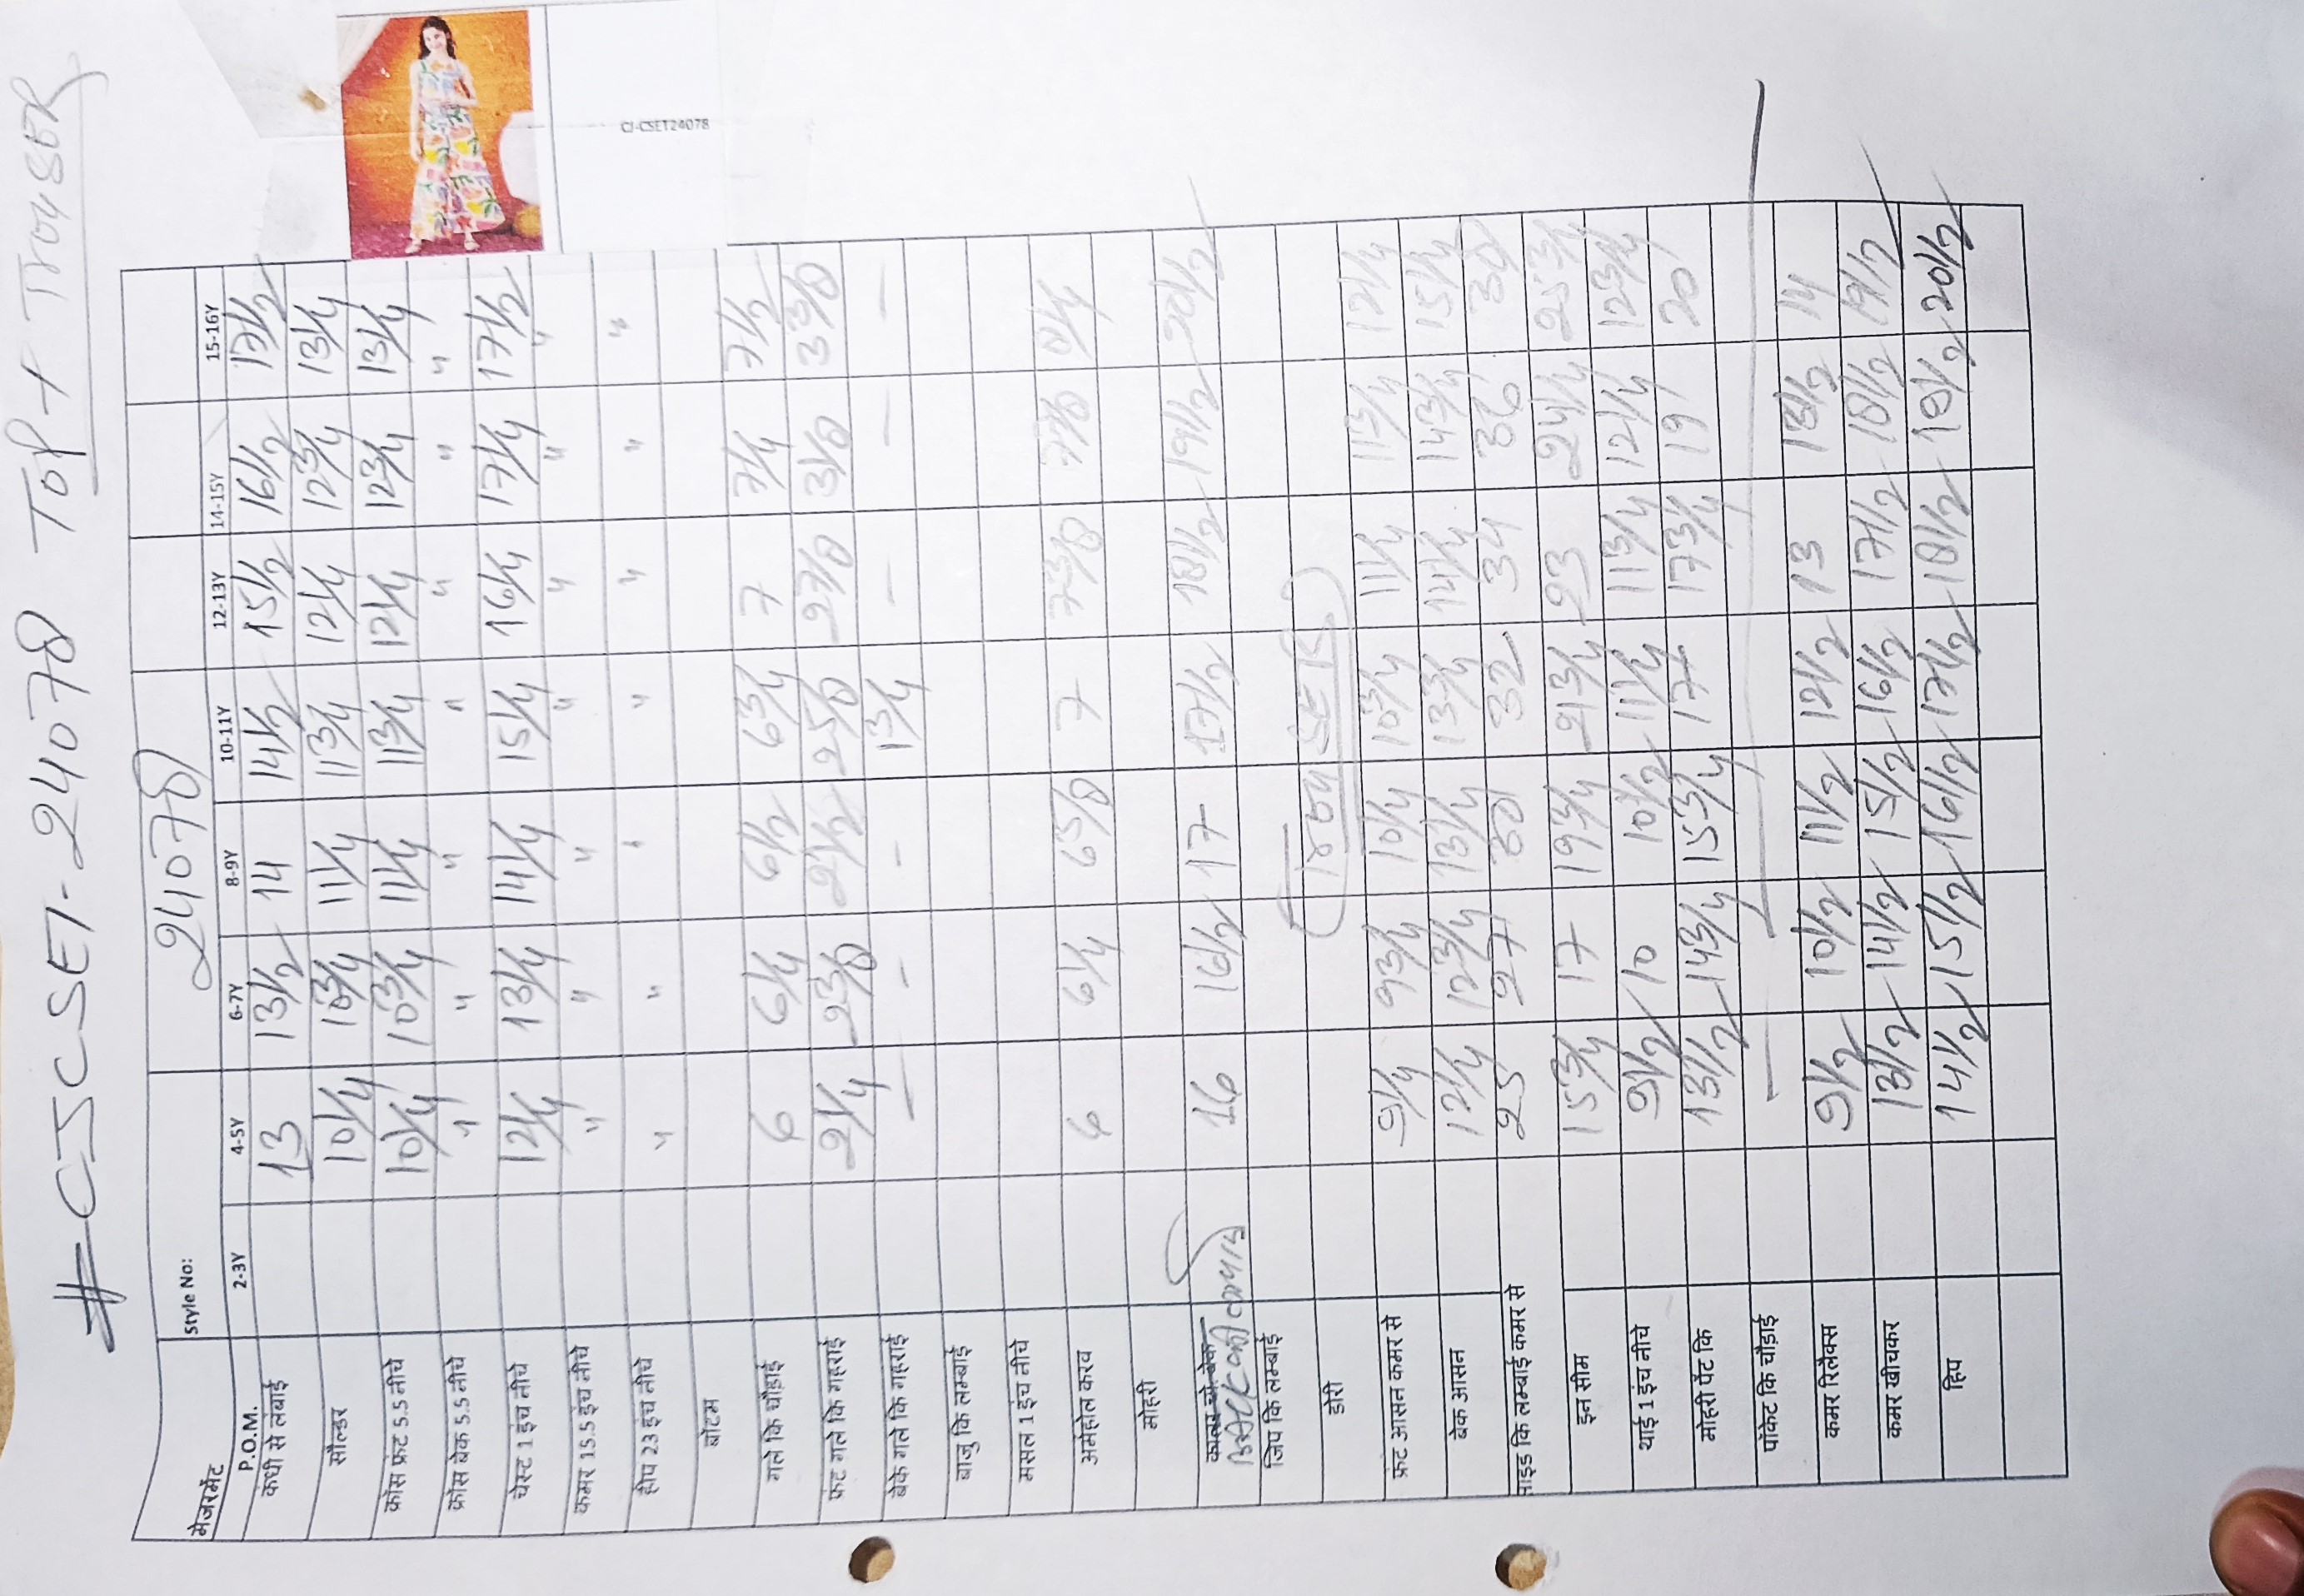 #CJSCSET-24078 TOP+TROUSER
CJ-CSET24078
मेजरमेंट Style No: 24078
P.O.M. 2-3Y 4-5Y 6-7Y 8-9Y 10-11Y 12-13Y 14-15Y 15-16Y
कंधी से लंबाई 13 13 1/2 14 14 1/2 15 1/2 16 1/2 17 1/2
सौल्डर 10 1/4 10 3/4 11 1/4 11 3/4 12 1/4 12 3/4 13 1/4
क्रॉस फ्रंट 5.5 नीचे 10 1/4 10 3/4 11 1/4 11 3/4 12 1/4 12 3/4 13 1/4
क्रॉस बेक 5.5 नीचे " " " " " " "
चेस्ट 1 इंच नीचे 12 1/4 13 1/4 14 1/4 15 1/4 16 1/4 17 1/4 17 1/2
कमर 15.5 इंच नीचे " " " " " " "
हीप 23 इंच नीचे " " " " " " "
बॉटम
गले कि चौड़ाई 6 6 1/4 6 1/2 6 3/4 7 7 1/4 7 1/2
फ्रंट गले कि गहराई 2 1/4 2 3/8 2 1/2 2 5/8 2 7/8 3 1/8 3 3/8
बेके गले कि गहराई - - - 1 3/4 - - -
बाजु कि लम्बाई
मसल 1 इंच नीचे
अर्महोल करव 6 6 1/4 6 5/8 7 7 3/8 7 7/8 8 1/4
मोहरी
BACK की लम्बाई 16 16 1/2 17 17 1/2 18 1/2 19 1/2 20 1/2
जिप कि लम्बाई
डोरी
फ्रंट आसन कमर से 9 1/4 9 3/4 10 1/4 10 3/4 11 1/4 11 3/4 12 1/4
बेक आसन 12 1/4 12 3/4 13 1/4 13 3/4 14 1/4 14 3/4 15 1/4
साइड कि लम्बाई कमर से 25 27 30 32 34 36 38
इन सीम 15 3/4 17 19 3/4 21 3/4 23 24 1/4 25 3/4
थाई 1 इंच नीचे 9 1/2 10 10 1/2 11 1/4 11 3/4 12 1/4 12 3/4
मोहरी पेंट कि 13 1/2 14 3/4 15 3/4 17 17 3/4 19 20
पॉकेट कि चौड़ाई
कमर रिलैक्स 9 1/2 10 1/2 11 1/2 12 1/2 13 13 1/2 14
कमर खीचकर 13 1/2 14 1/2 15 1/2 16 1/2 17 1/2 18 1/2 19 1/2
हिप 14 1/2 15 1/2 16 1/2 17 1/2 18 1/2 19 1/2 20 1/2